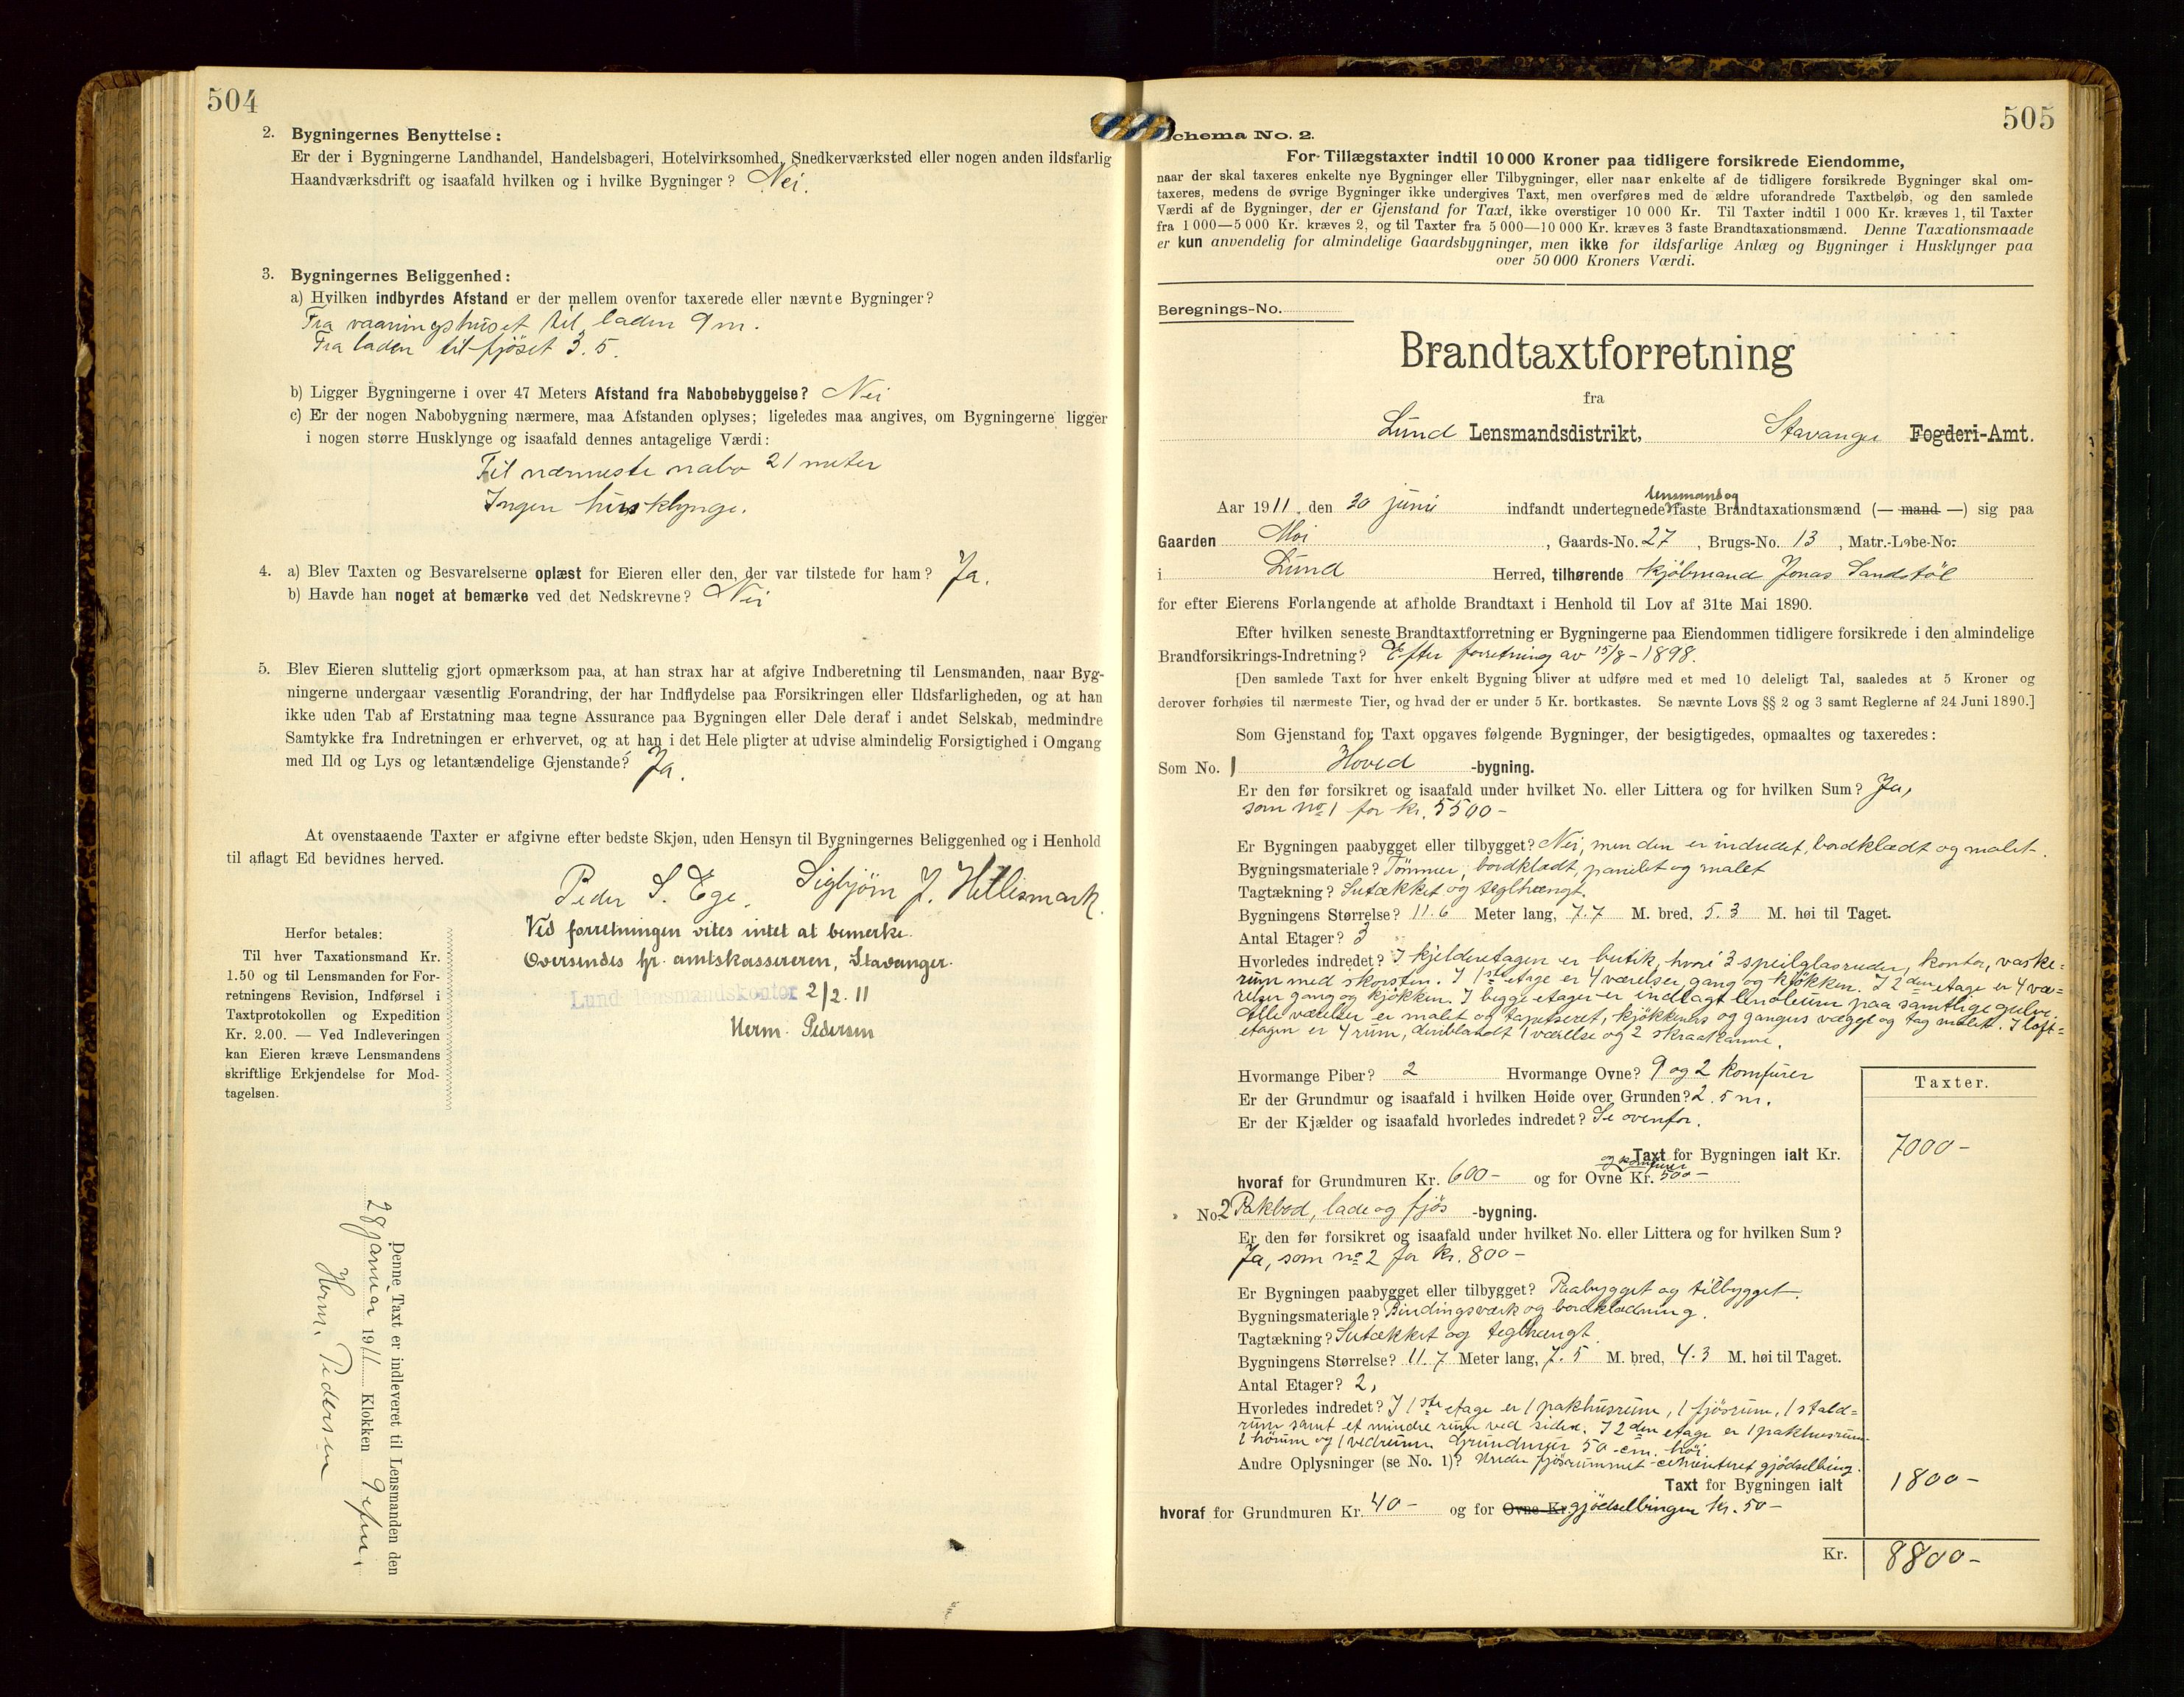 504
2. Bygningernes Benyttelse:
Er der i Bygningerne Landhandel, Handelsbageri, Hotelvirksomhed, Snedkerværksted eller nogen anden ildsfarlig
Haandværksdrift og isaafald hvilken og i hvilke Bygninger? Nei.
3. Bygningernes Beliggenhed:
a) Hvilken indbyrdes Afstand er der mellem ovenfor taxerede eller nævnte Bygninger?
Fra vaaningshuset til laden 9 m.
Fra laden til fjöset 3.5.
b) Ligger Bygningerne i over 47 Meters Afstand fra Nabobebyggelse? Nei
c) Er der nogen Nabobygning nærmere, maa Afstanden oplyses; ligeledes maa angives, om Bygningerne ligger
i nogen større Husklynge og isaafald dennes antagelige Værdi:
Til nærmeste nabo 21 meter
Ingen husklynge.
4. a) Blev Taxten og Besvarelserne oplæst for Eieren eller den, der var tilstede for ham? Ja.
b) Havde han noget at bemærke ved det Nedskrevne? Nei
5. Blev Eieren sluttelig gjort opmærksom paa, at han strax har at afgive Indberetning til Lensmanden, naar Byg-
ningerne undergaar væsentlig Forandring, der har Indflydelse paa Forsikringen eller Ildsfarligheden, og at han
ikke uden Tab af Erstatning maa tegne Assurance paa Bygningen eller Dele deraf i andet Selskab, medmindre
Samtykke fra Indretningen er erhvervet, og at han i det Hele pligter at udvise almindelig Forsigtighed i Omgang
med Ild og Lys og letantændelige Gjenstande? Ja.
At ovenstaaende Taxter er afgivne efter bedste Skjøn, uden Hensyn til Bygningernes Beliggenhed og i Henhold
til aflagt Ed bevidnes herved.
Peder S. Ege. Sigbjörn J. Hellesmark.
Ved forretningen vites intet at bemerke.
Oversendes hr. amtskassereren, Stavanger.
Lund lensmandskontor 2/2. 11
Herm. Pedersen
Herfor betales:
Til hver Taxationsmand Kr.
1.50 og til Lensmanden for For-
retningens Revision, Indførsel i
Taxtprotokollen og Expedition
Kr. 2.00. — Ved Indleveringen
kan Eieren kræve Lensmandens
skriftlige Erkjendelse for Mod-
tagelsen.
Denne Taxt er indleveret til Lensmanden den
28 januar 1911 Klokken 9 efm.
Herm. Pedersen
505
Schema No. 2.
For Tillægstaxter indtil 10 000 Kroner paa tidligere forsikrede Eiendomme,
naar der skal taxeres enkelte nye Bygninger eller Tilbygninger, eller naar enkelte af de tidligere forsikrede Bygninger skal om-
taxeres, medens de øvrige Bygninger ikke undergives Taxt, men overføres med de ældre uforandrede Taxtbeløb, og den samlede
Værdi af de Bygninger, der er Gjenstand for Taxt, ikke overstiger 10 000 Kr. Til Taxter indtil 1 000 Kr. kræves 1, til Taxter
fra 1 000—5 000 Kr. kræves 2, og til Taxter fra 5 000—10 000 Kr. kræves 3 faste Brandtaxationsmænd. Denne Taxationsmaade
er kun anvendelig for almindelige Gaardsbygninger, men ikke for ildsfarlige Anlæg og Bygninger i Husklynger paa
over 50 000 Kroners Værdi.
Beregnings-No.
Brandtaxtforretning
fra
Lund Lensmandsdistrikt, Stavanger Fogderi-Amt.
lensmand og
Aar 1911, den 30 juni indfandt undertegnede faste Brandtaxationsmænd (— mand —) sig paa
Gaarden Moi, Gaards-No. 27, Brugs-No. 13, Matr.-Løbe-No.
i Lund Herred, tilhørende kjöbmand Jonas Sandstöl
for efter Eierens Forlangende at afholde Brandtaxt i Henhold til Lov af 31te Mai 1890.
Efter hvilken seneste Brandtaxtforretning er Bygningerne paa Eiendommen tidligere forsikrede i den almindelige
Brandforsikrings-Indretning? Efter forretning av 15/8-1898.
[Den samlede Taxt for hver enkelt Bygning bliver at udføre med et med 10 deleligt Tal, saaledes at 5 Kroner og
derover forhøies til nærmeste Tier, og hvad der er under 5 Kr. bortkastes. Se nævnte Lovs §§ 2 og 3 samt Reglerne af 24 Juni 1890.]
Som Gjenstand for Taxt opgaves følgende Bygninger, der besigtigedes, opmaaltes og taxeredes:
Som No. 1 Hoved -bygning.
Er den før forsikret og isaafald under hvilket No. eller Littera og for hvilken Sum? Ja,
som no 1 for kr. 5500-
Er Bygningen paabygget eller tilbygget? Nei, men den er indredet, bordklædt og malet.
Bygningsmateriale? Tömmer, bordklædt, panelet og malet
Tagtækning? Sutækket og teglhængt.
Bygningens Størrelse? 11.6 Meter lang, 7.7 M. bred, 5.3 M. høi til Taget.
Antal Etager? 3
Hvorledes indredet? I kjelderetagen er butik, hvori 3 speilglasruder, kontor, vaske=
rum med skorsten. I 1ste etage er 4 værelser, gang og kjökken. I 2den etage er 4 væ=
relser gang og kjökken. I begge etager er indlagt linoleum paa samtlige gulve.
Alle værelser er malet og tapetseret, kjökkeners og gangers vægge og tag malet. I loft=
etagen er 4 rum, deriblandt 1 værelse og 2 skraakamre.
Hvormange Piber? 2 Hvormange Ovne? 9 og 2 komfurer
Er der Grundmur og isaafald i hvilken Høide over Grunden? 2.5 m.
Er der Kjælder og isaafald hvorledes indredet? Se ovenfor.
Taxter.
Taxt for Bygningen ialt Kr. 7000-
og komfurer
hvoraf for Grundmuren Kr. 600- og for Ovne Kr. 500-
" No. 2 Pakbod, lade og fjös -bygning.
Er den før forsikret og isaafald under hvilket No. eller Littera og for hvilken Sum?
Ja, som no 2 for kr. 800-
Er Bygningen paabygget eller tilbygget? Paabygget og tilbygget.
Bygningsmateriale? Bindingsverk og bordklædning.
Tagtækning? Sutækket og teglhængt.
Bygningens Størrelse? 11.7 Meter lang, 7.5 M. bred, 4.3 M. høi til Taget.
Antal Etager? 2,
Hvorledes indredet? I 1ste etage er 1 pakhusrum, 1 fjösrum, 1 stald=
rum samt et mindre rum ved siden. I 2den etage er 1 pakhusrum
1 hörum og 1 vedrum. Grundmur 50 cm. höi.
Andre Oplysninger (se No. 1)? Under fjösrummet cementeret gjödselbing.
Taxt for Bygningen ialt 1800-
hvoraf for Grundmuren Kr. 40- og for Ovne Kr. gjödselbingen kr. 50-
Kr. 8800-